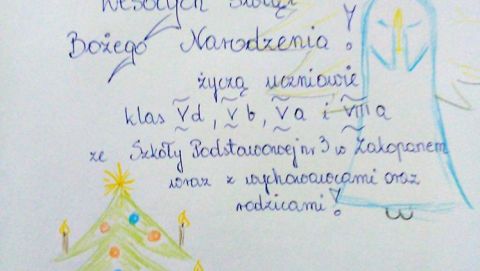 Wesołych Świąt
Bożego Narodzenia!
życzą uczniowie
klas Vd, Vb, Va i VIIIa
ze Szkoły Podstawowej nr 3 w Zakopanem
wraz z wychowawcami oraz
rodzicami!